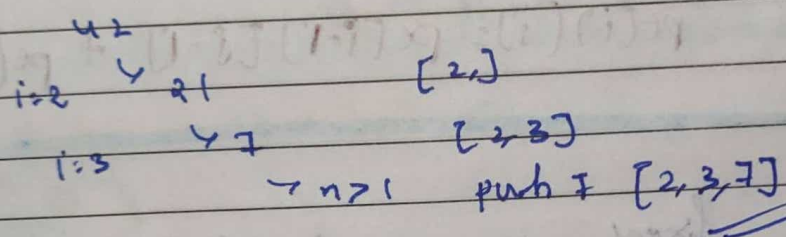 42
i=2 ↘ 21 [2,]
i=3 ↘ 7 [2,3]
↘ n>1 push 7 [2,3,7]